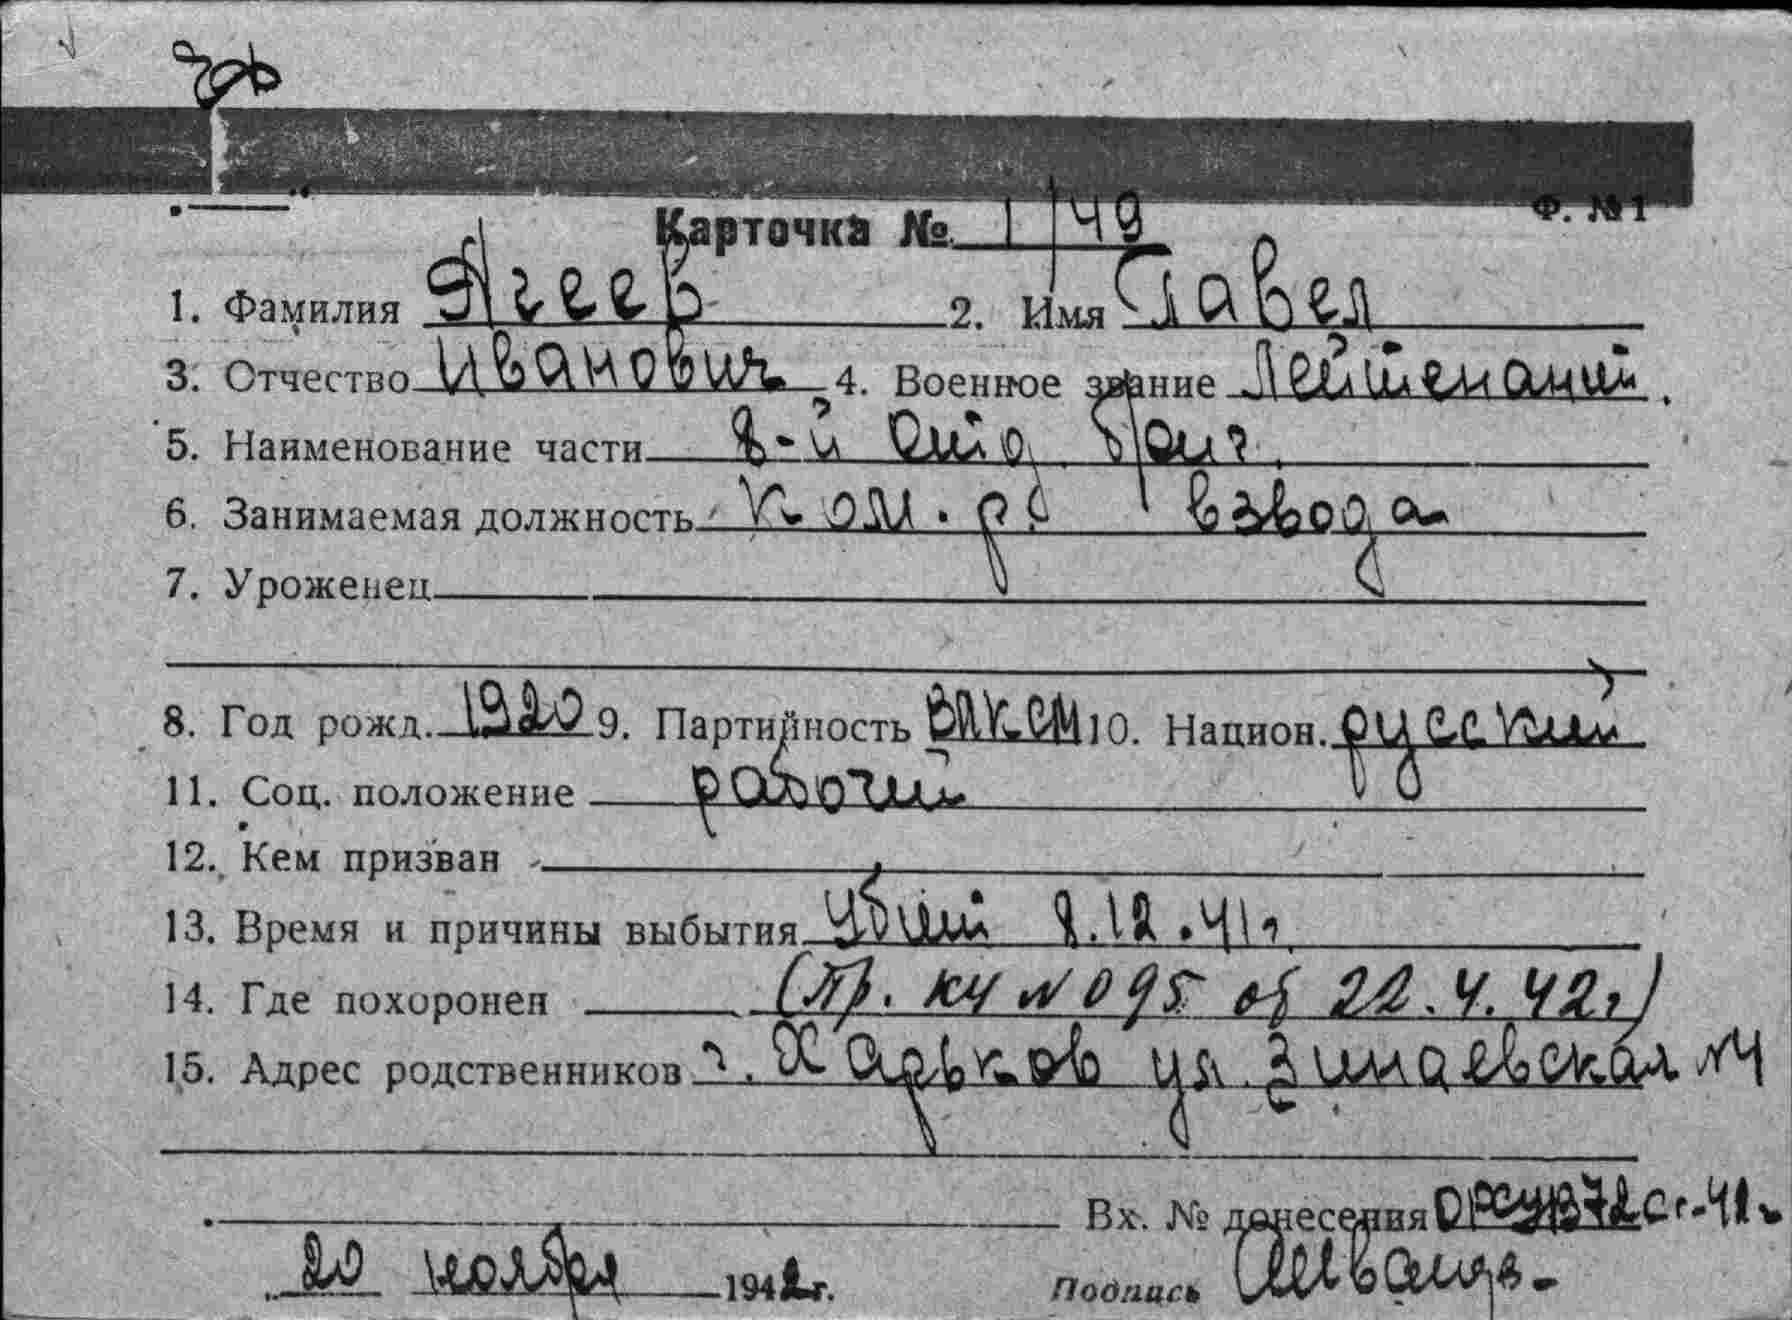 Ф. №1
Карточка № 1/49
1. Фамилия Агеев 2. Имя Павел
3. Отчество Иванович 4. Военное звание Лейтенант.
5. Наименование части 8-й отд. бриг.
6. Занимаемая должность Ком-р взвода
7. Уроженец
8. Год рожд. 1920 9. Партийность ВЛКСМ 10. Национ. русский
11. Соц. положение рабочий
12. Кем призван
13. Время и причины выбытия Убит 8.12.41г.
14. Где похоронен (пр. КЧ № 095 об 22.4.42г)
15. Адрес родственников г. Харьков ул. Зинаевская №4
Вх. № донесения с г.-42
20 ноября 1942г. Подпись